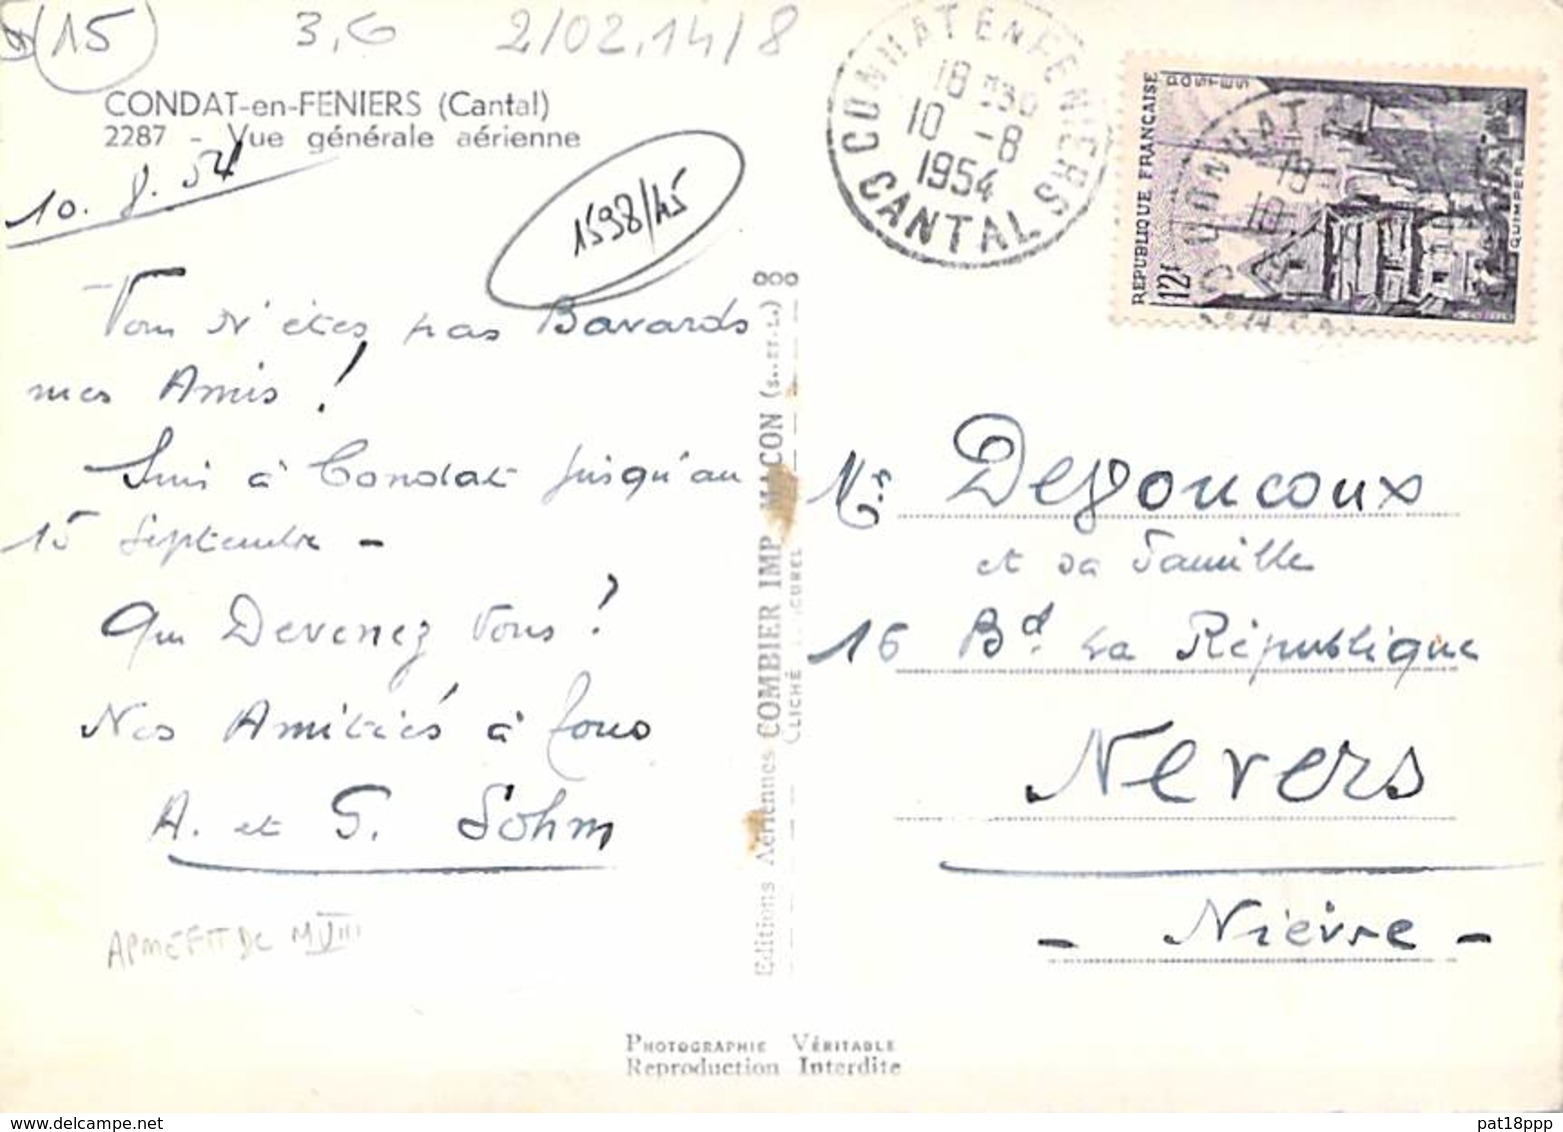 15
3,6
2/02.14/8
CONDAT-en-FENIERS (Cantal)
2287 - Vue générale aérienne
10. 8. 54
1598/15
Vous N'êtes pas Bavards
mes Amis !
Suis à Condat jusqu'au
15 Septembre -
Qui Devenez Vous ?
Nos Amitiés à Tous
A. et G. Sohm
Editions Aériennes COMBIER IMP. MACON (S.-ET-L.)
CLICHÉ
PHOTOGRAPHIE VÉRITABLE
Reproduction Interdite
CONDAT EN FENIERS
18 H30
10 -8
1954
CANTAL
REPUBLIQUE FRANÇAISE
POSTES
12F
QUIMPER
Mrs Degoucoux
et sa Famille
16 Bd. La République
Nevers
- Nièvre -
pat18ppp